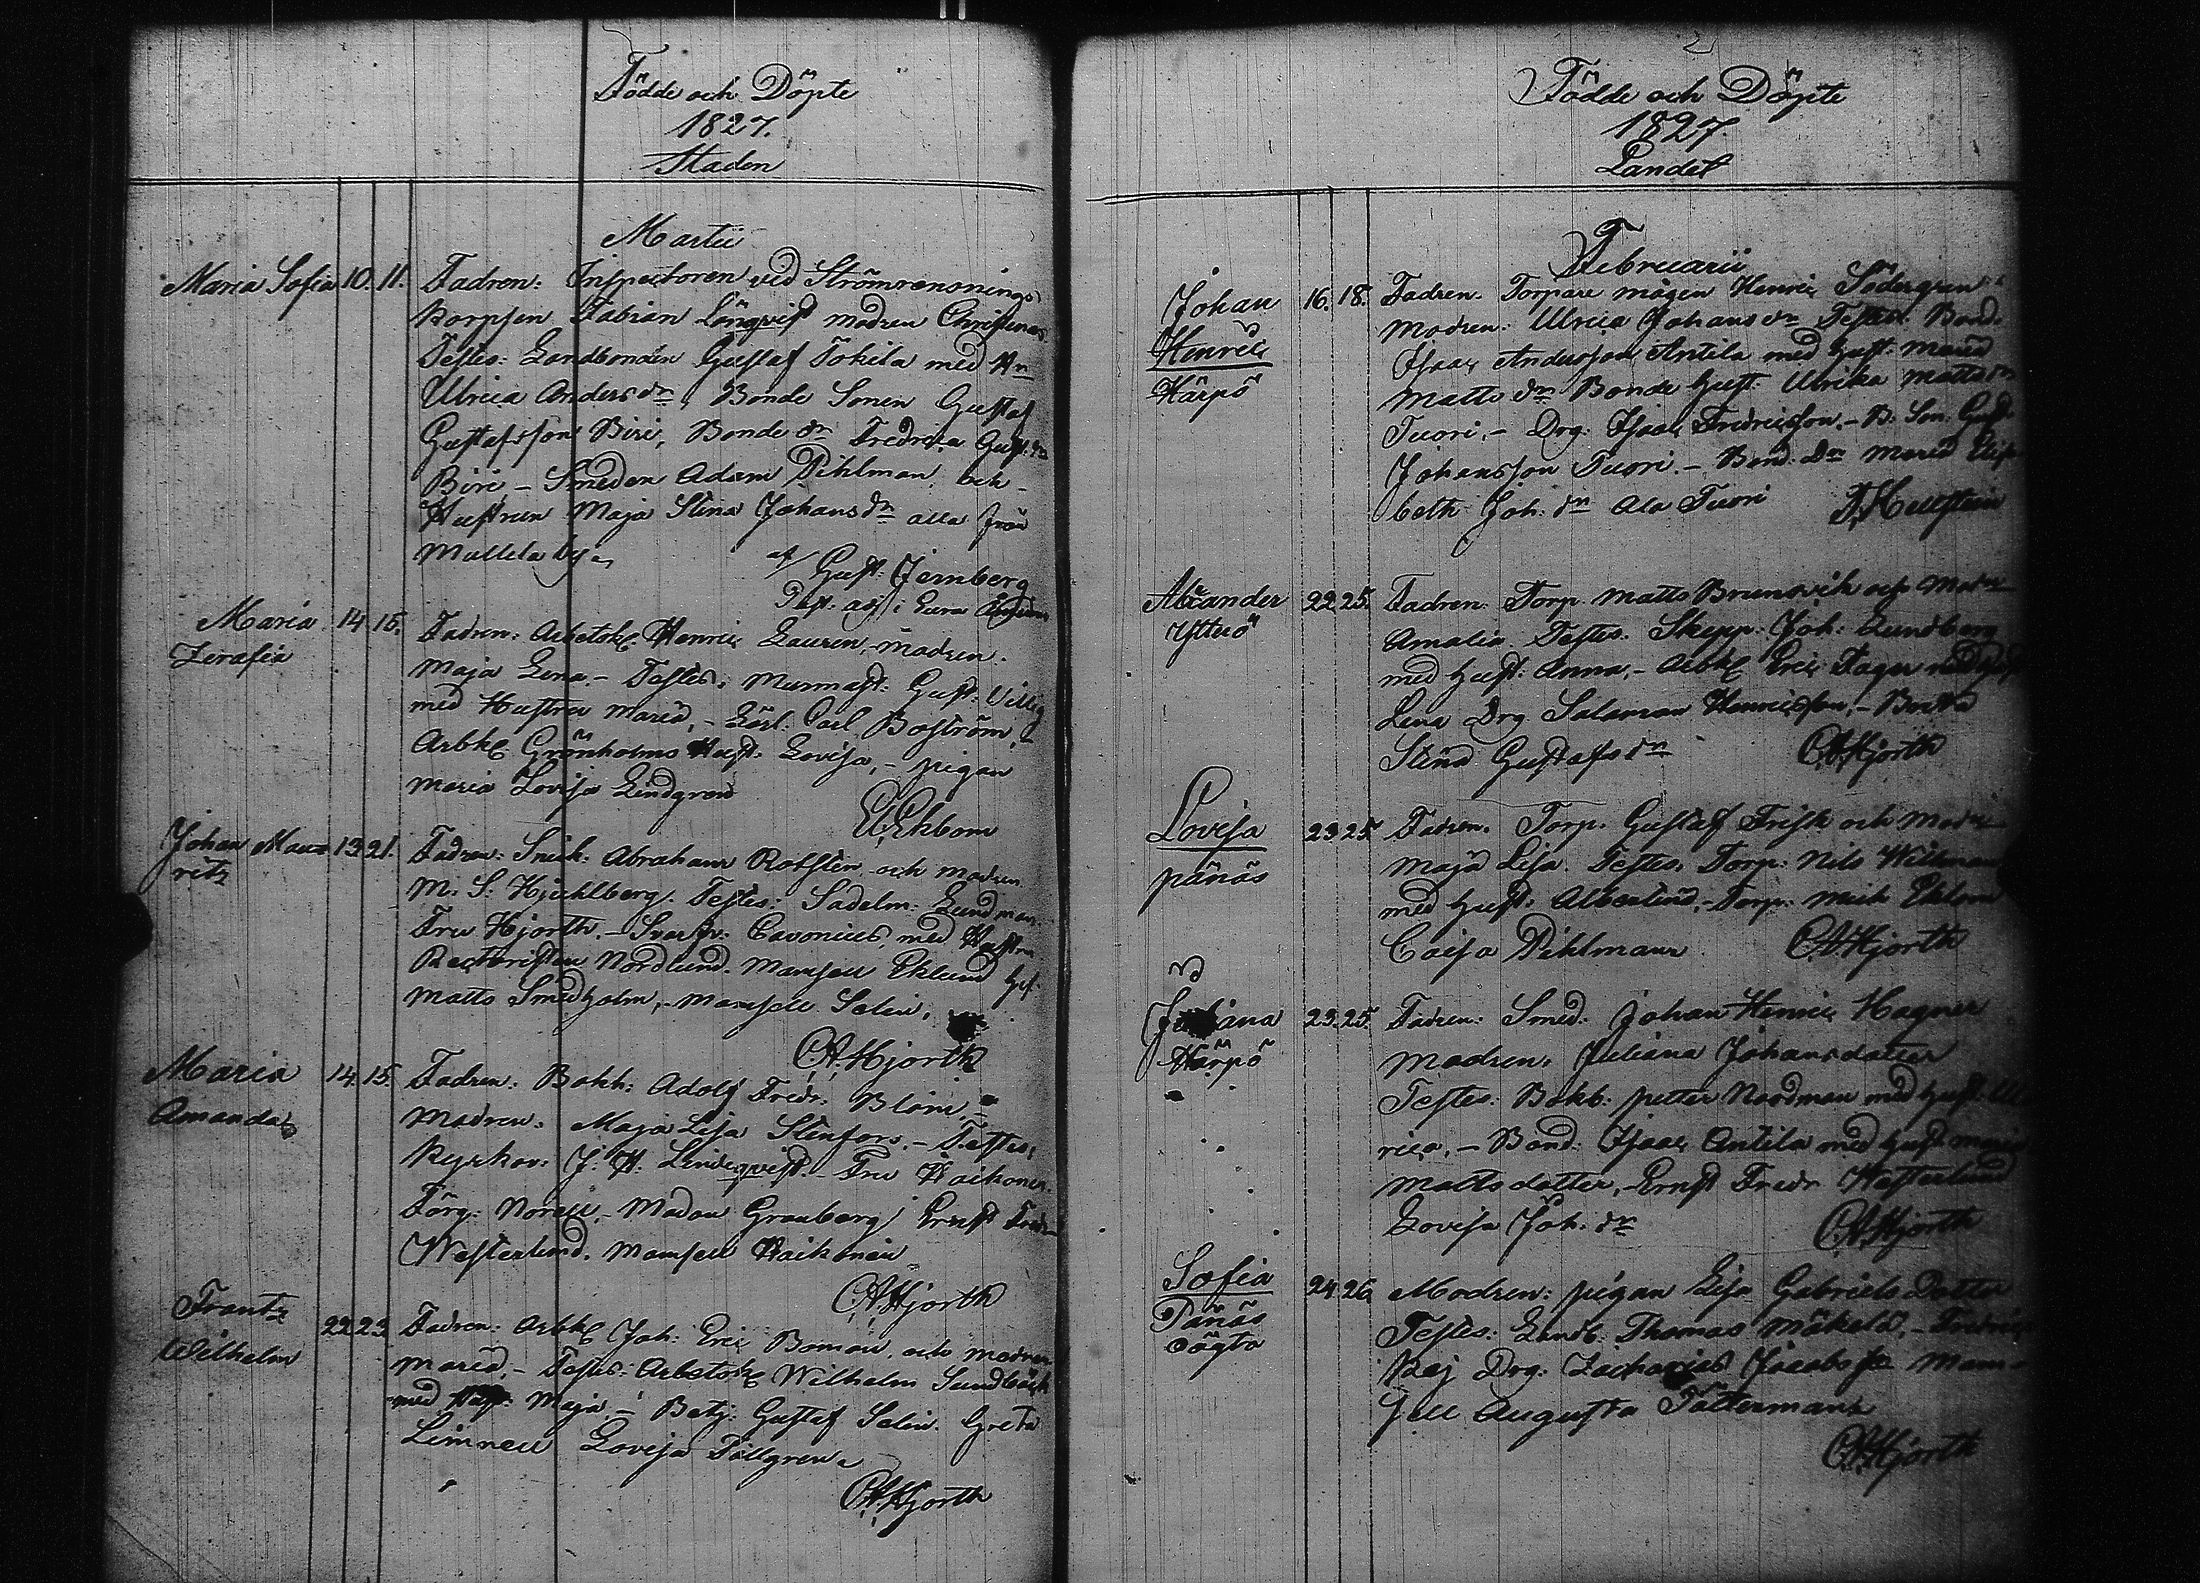 Födde och Döpte
1827.
Staden
Martii
Maria Sofia 10. 11. Fadren: Inspectoren vid Strömrensnings
korpsen Fabian Lönqvist modren Christina
Testes: Landbonden Gustaf Tokila med Hu
Ulrica Andersdr, Bonde Sonen Gustaf
Gustafsson Biri, Bonde dr Fredrica Gust. dr
Biri – Smeden Adam Pihlman och
Hustrun Maja Stina Johansdr alla från
Mullila by
af Gust. Jernberg
Past. adj. i Eura
Maria 14. 15. Fadren: Arbetsk. Henric Lauren, modren
Serafia Maja Lena. – Testes: Murmast. Gust. Villig
med Hustru Maria, – Lärl. Carl Boström, –
Arbk. Grönholms Hust. Lovisa, – pigan
Maria Lovisa Lindgren
E. Ekbom
Johan Mau= 13. 21. Fadren: Snick: Abraham Rotsten och modren
ritz M. S. Hjuhlberg. Testes: Sadelm: Lundman
Fru Hjorth. – Svarfv: Cavonius, med Hustru
Nordlund. Mamsell Eklund
Matts Smedholm, – Mamsell Salin,
C.A. Hjorth
Maria 14. 15. Fadren: Bokh: Adolf Fredr. Blom, –
Amanda Modren: Maja Lisa Stenfors. – Testes:
Kyrkov: J. H. Lindeqvist. – Fru Raikonen
Färg: Norell, – Madam Granberg Ernst Fredr
Westerlund. Mamsell Raikonen
C.A. Hjorth
Frantz 22. 23. Fadren: Arbk. Joh: Eric Boman och modren
Wilhelm Maria, – Testes: Arbetsk. Wilhelm Sundbäck
med Hust: Maja – Betj: Gustaf Salin. Greta
Limnell Lovisa Tallgren
C.A. Hjorth
2
Födde och Döpte
1827.
Landet
Februarii
Johan 16. 18. Fadren. Torpare mågen Henric Södergren
Henric Modren: Ulrica Johansdr Testes: Bond.
Härpö Isaac Andersson Antila med hust. Maria
Matts dr Bonde hust. Ulrika Mattsdr
Tuori. – Drg: Isaac Fredricsson. – B. Son. Gust.
Johansson Tuori. – Bond. Dr Maria Elisa
beth Joh. dr Ala Tuori
Alexander 22. 25. Fadren: Torp. Matts Brunsvik och Modr
Ytterö Amalia. Testes: Skepp. Joh: Lundberg
med hust: Anna, – Arbk. Eric Fager med hust
Lena Drg Salamon Henricsson, – Britta
Stina Gustafsdr C.A. Hjorth
Lovisa 23. 25. Fadren. Torp. Gustaf Frisk och Modr
pänäs Maja Lisa. Testes: Torp: Nils Willman
med hust: Albertina, – Torp: Mich Ekbom
Caisa Pihlman C.A. Hjorth
Juliana 23. 25. Fadren: Smed. Johan Henric Hagner
Härpö Modren: Juliana Johansdatter
Testes: Bokb. petter Nordman med hust. Ul
rica, – Bond. Isaac Antila med hust Maria
Mattsdatter, – Ernst Fredr Westerlund
Lovisa Joh. dr C.A. Hjorth
Sofia 24. 26. Modren: pigan Lisa Gabriels Datter
Pänäs Testes: Landb. Thomas Mäkelä, – Fredric
oägta Kaj Drg. Zacharias Jacobsson Mam=
sell Augusta Fatterman
C.A. Hjorth